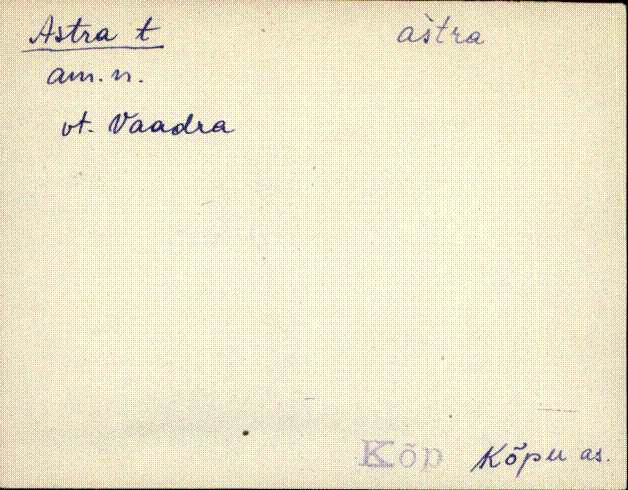 Astra t aštra
am. n.
vt. Vaadra
Kõp Kõpu as.